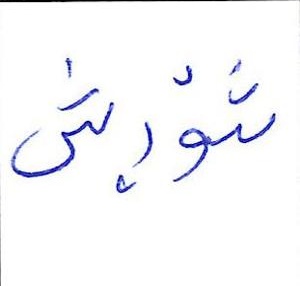 شۆڕش